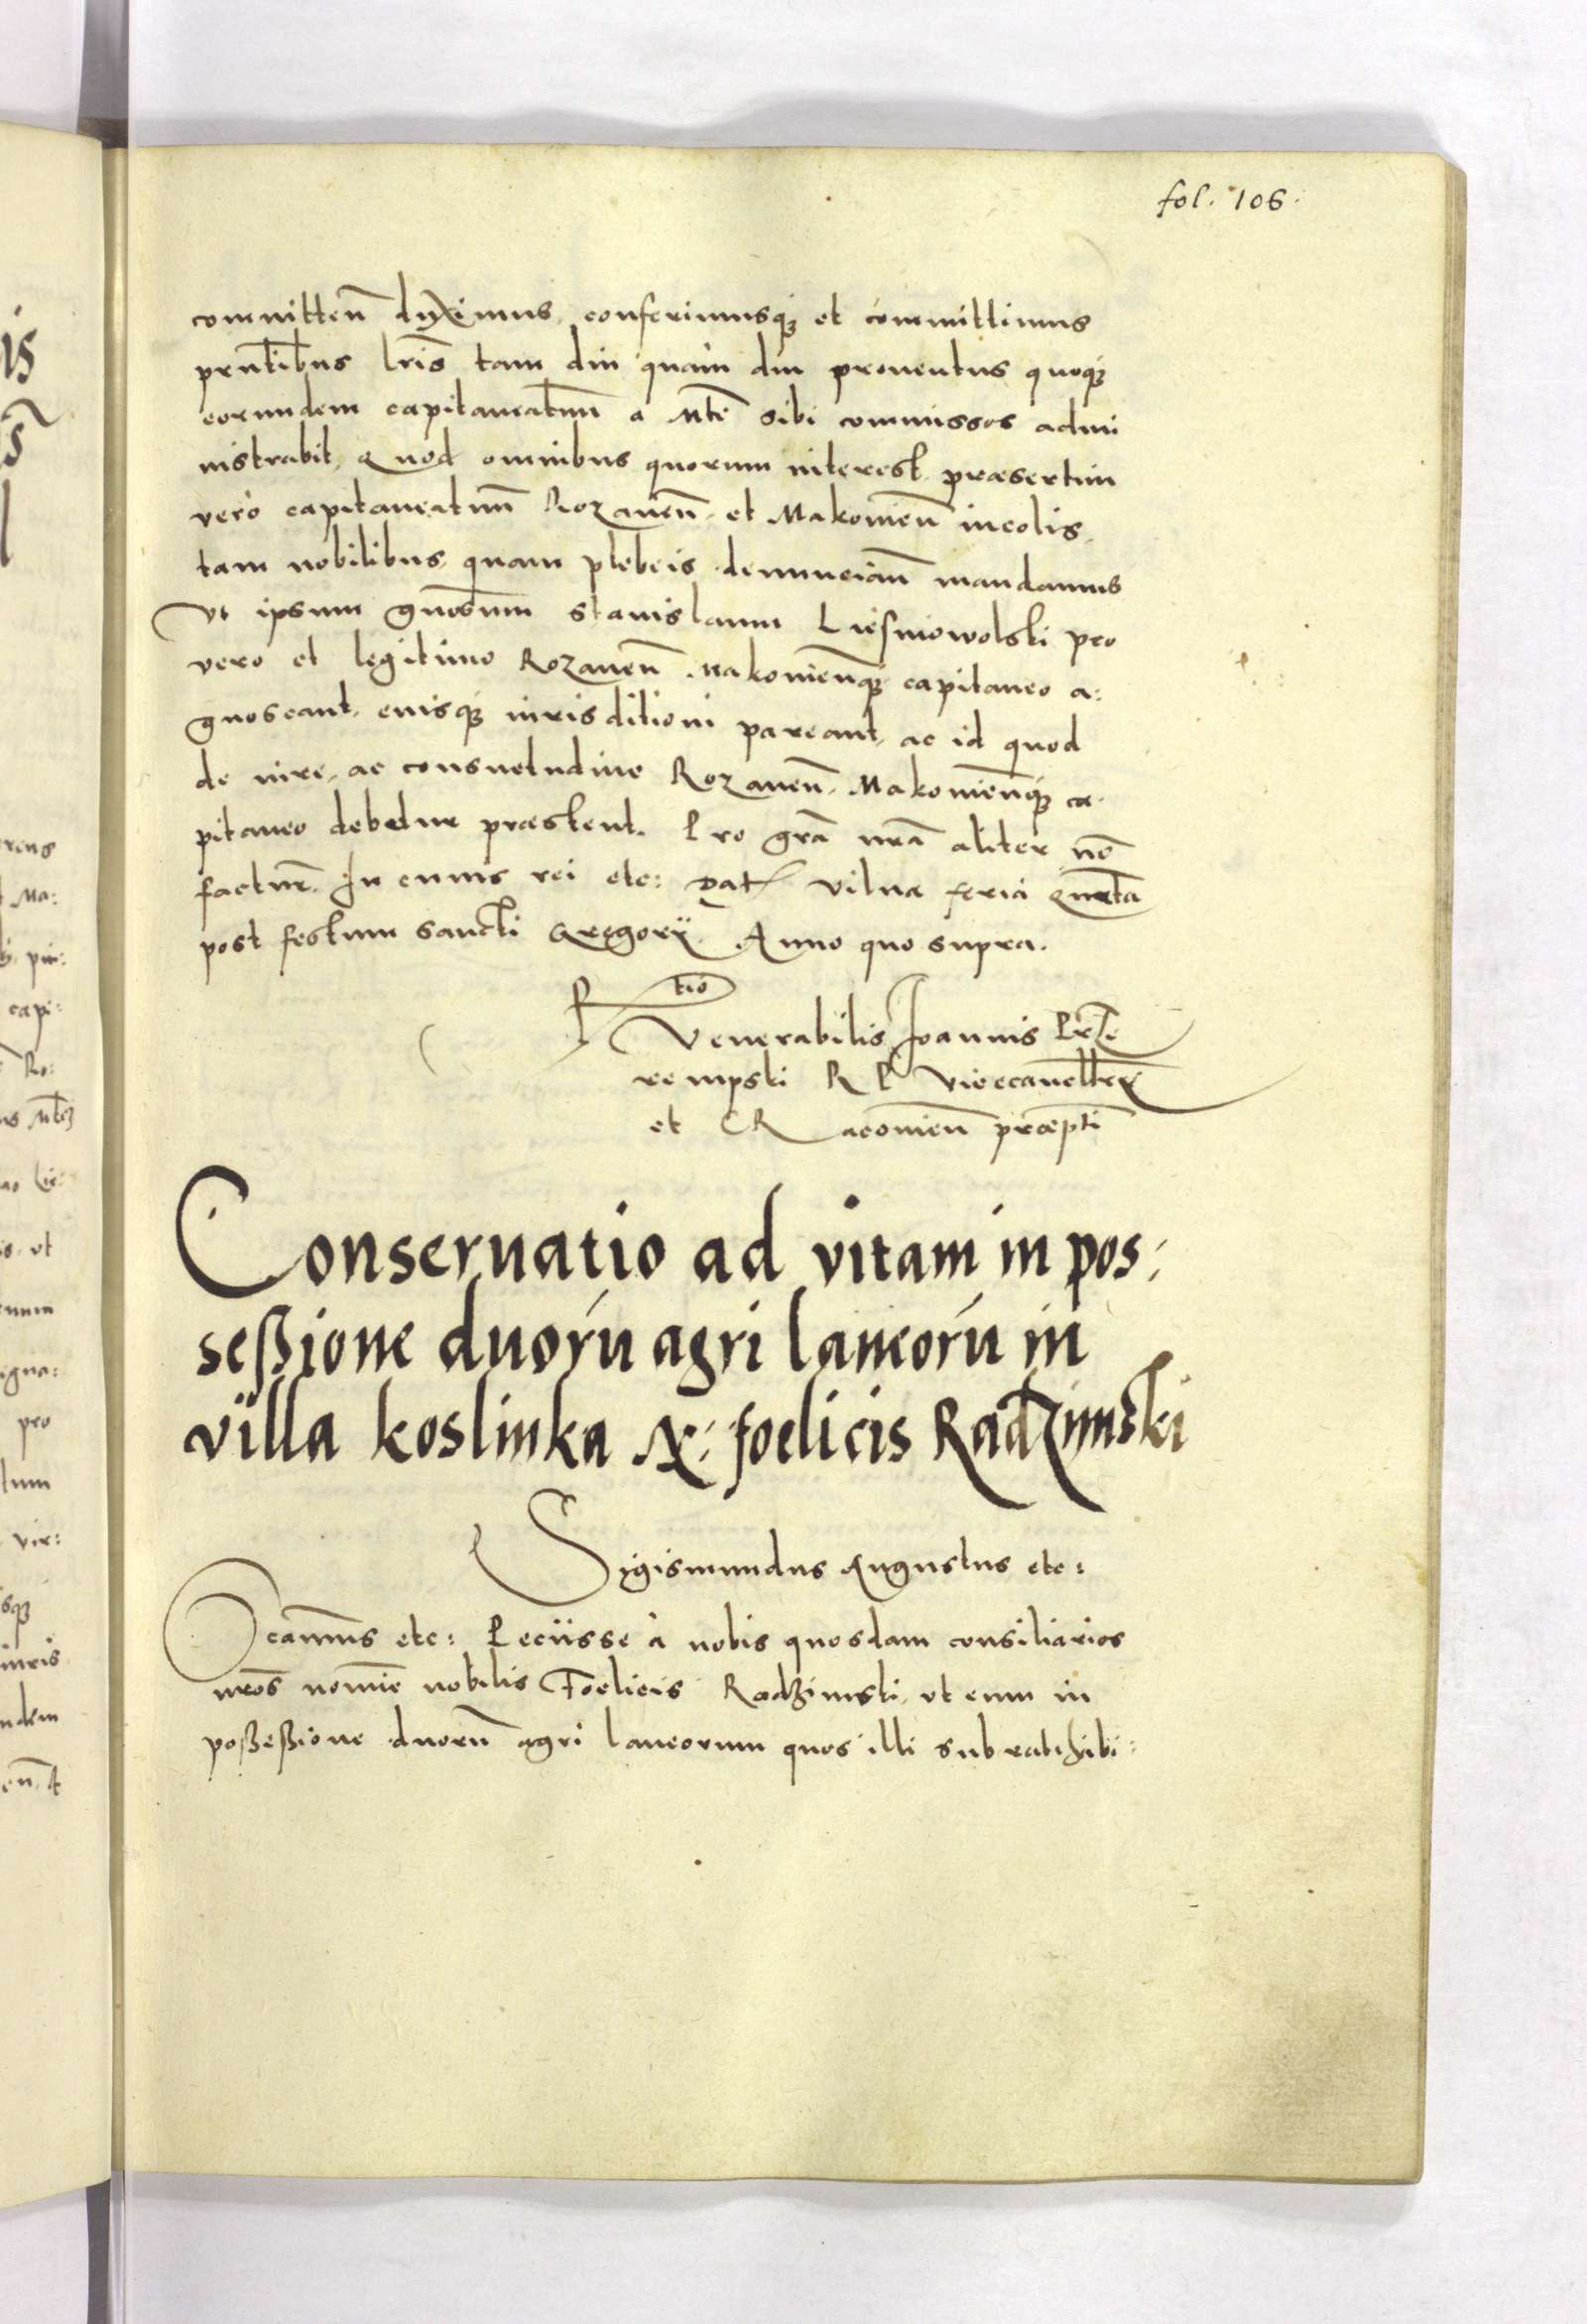 fol. 106.
committen̄ duximus, conferimusq₃ et committimus
prn̄tibus lr̄is tam diu quam diu prouentus quoq₃
eorundem capitaneatuum a Mte sibi commissos admi
nistrabit, Quod omnibus quorum interest, præsertim
vero capitaneatuum Rozanen̄. et Makouien̄ incolis,
tam nobilibus, quam plebeis denunciañ mandamus
Vt ipsum gnosum Stanislaum Liesniowolski pro
vero et legitimo Rozanen̄. Makouienq₃ capitaneo a:
gnoscant, eiusq₃ iurisditioni pareant, ac id quod
de iure, ac consuetudine Rozanen̄. Makouienq₃ ca
pitaneo debetur præstent. Pro grā nrā aliter nō
factur̄. In cuius rei etc: Dat Vilnæ feria Quarta
post festum sancti Gregorij. Anno quo supra.
Rtio
Venerabilis Joannis Prze
rempski R P Vicecancellrij
et CRacouien̄ præpti
Conseruatio ad vitam in pos:
seßione duorū agri laneorū in
villa koslinka N: foelicis Radzimski
Sigismundus Augustus etc:
Significamus etc: Peciisse à nobis quosdam consiliarios
nros nomine nobilis Foelicis Radzimski, vt eum in
poßeßione duorū agri laneorum quos illi sub